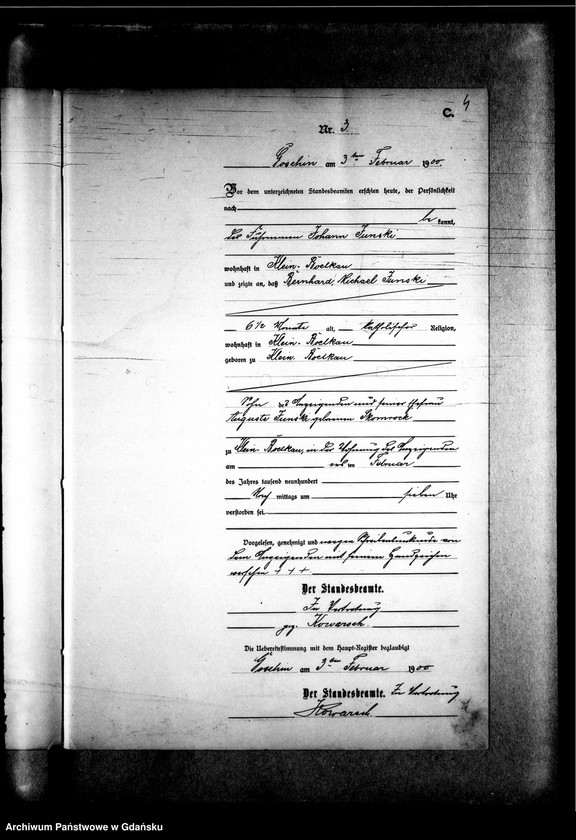 4
C.
Nr. 3
Goschin am 3ten Februar 1900.
Vor dem unterzeichneten Standesbeamten erschien heute, der Persönlichkeit
nach
be kannt,
der Johann Junski
wohnhaft in Klein-Roelkau
und zeigte an, daß Bernhard, Michael Junski
6 1/2 Monate alt, katholischer Religion,
wohnhaft in Klein-Roelkau
geboren zu Klein-Roelkau
Sohn des Anzeigenden und seiner Ehefrau
Auguste Junski geborenen
zu Klein-Roelkau, in der Wohnung des Anzeigenden
am ersten Februar
des Jahres tausend neunhundert
Vor mittags um sieben Uhr
verstorben sei.
Vorgelesen, genehmigt und wegen Schreibensunkunde von
dem Anzeigenden mit seinem Handzeichen
versehen + + +
Der Standesbeamte.
In Vertretung
gez. Kowarsch.
Die Uebereinstimmung mit dem Haupt-Register beglaubigt
Goschin am 3ten Februar 1900
Der Standesbeamte. In Vertretung
Kowarsch
Archiwum Państwowe w Gdańsku